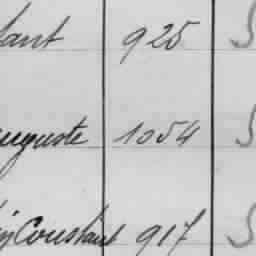 925 S
Auguste 1054 S
Constant 917 S